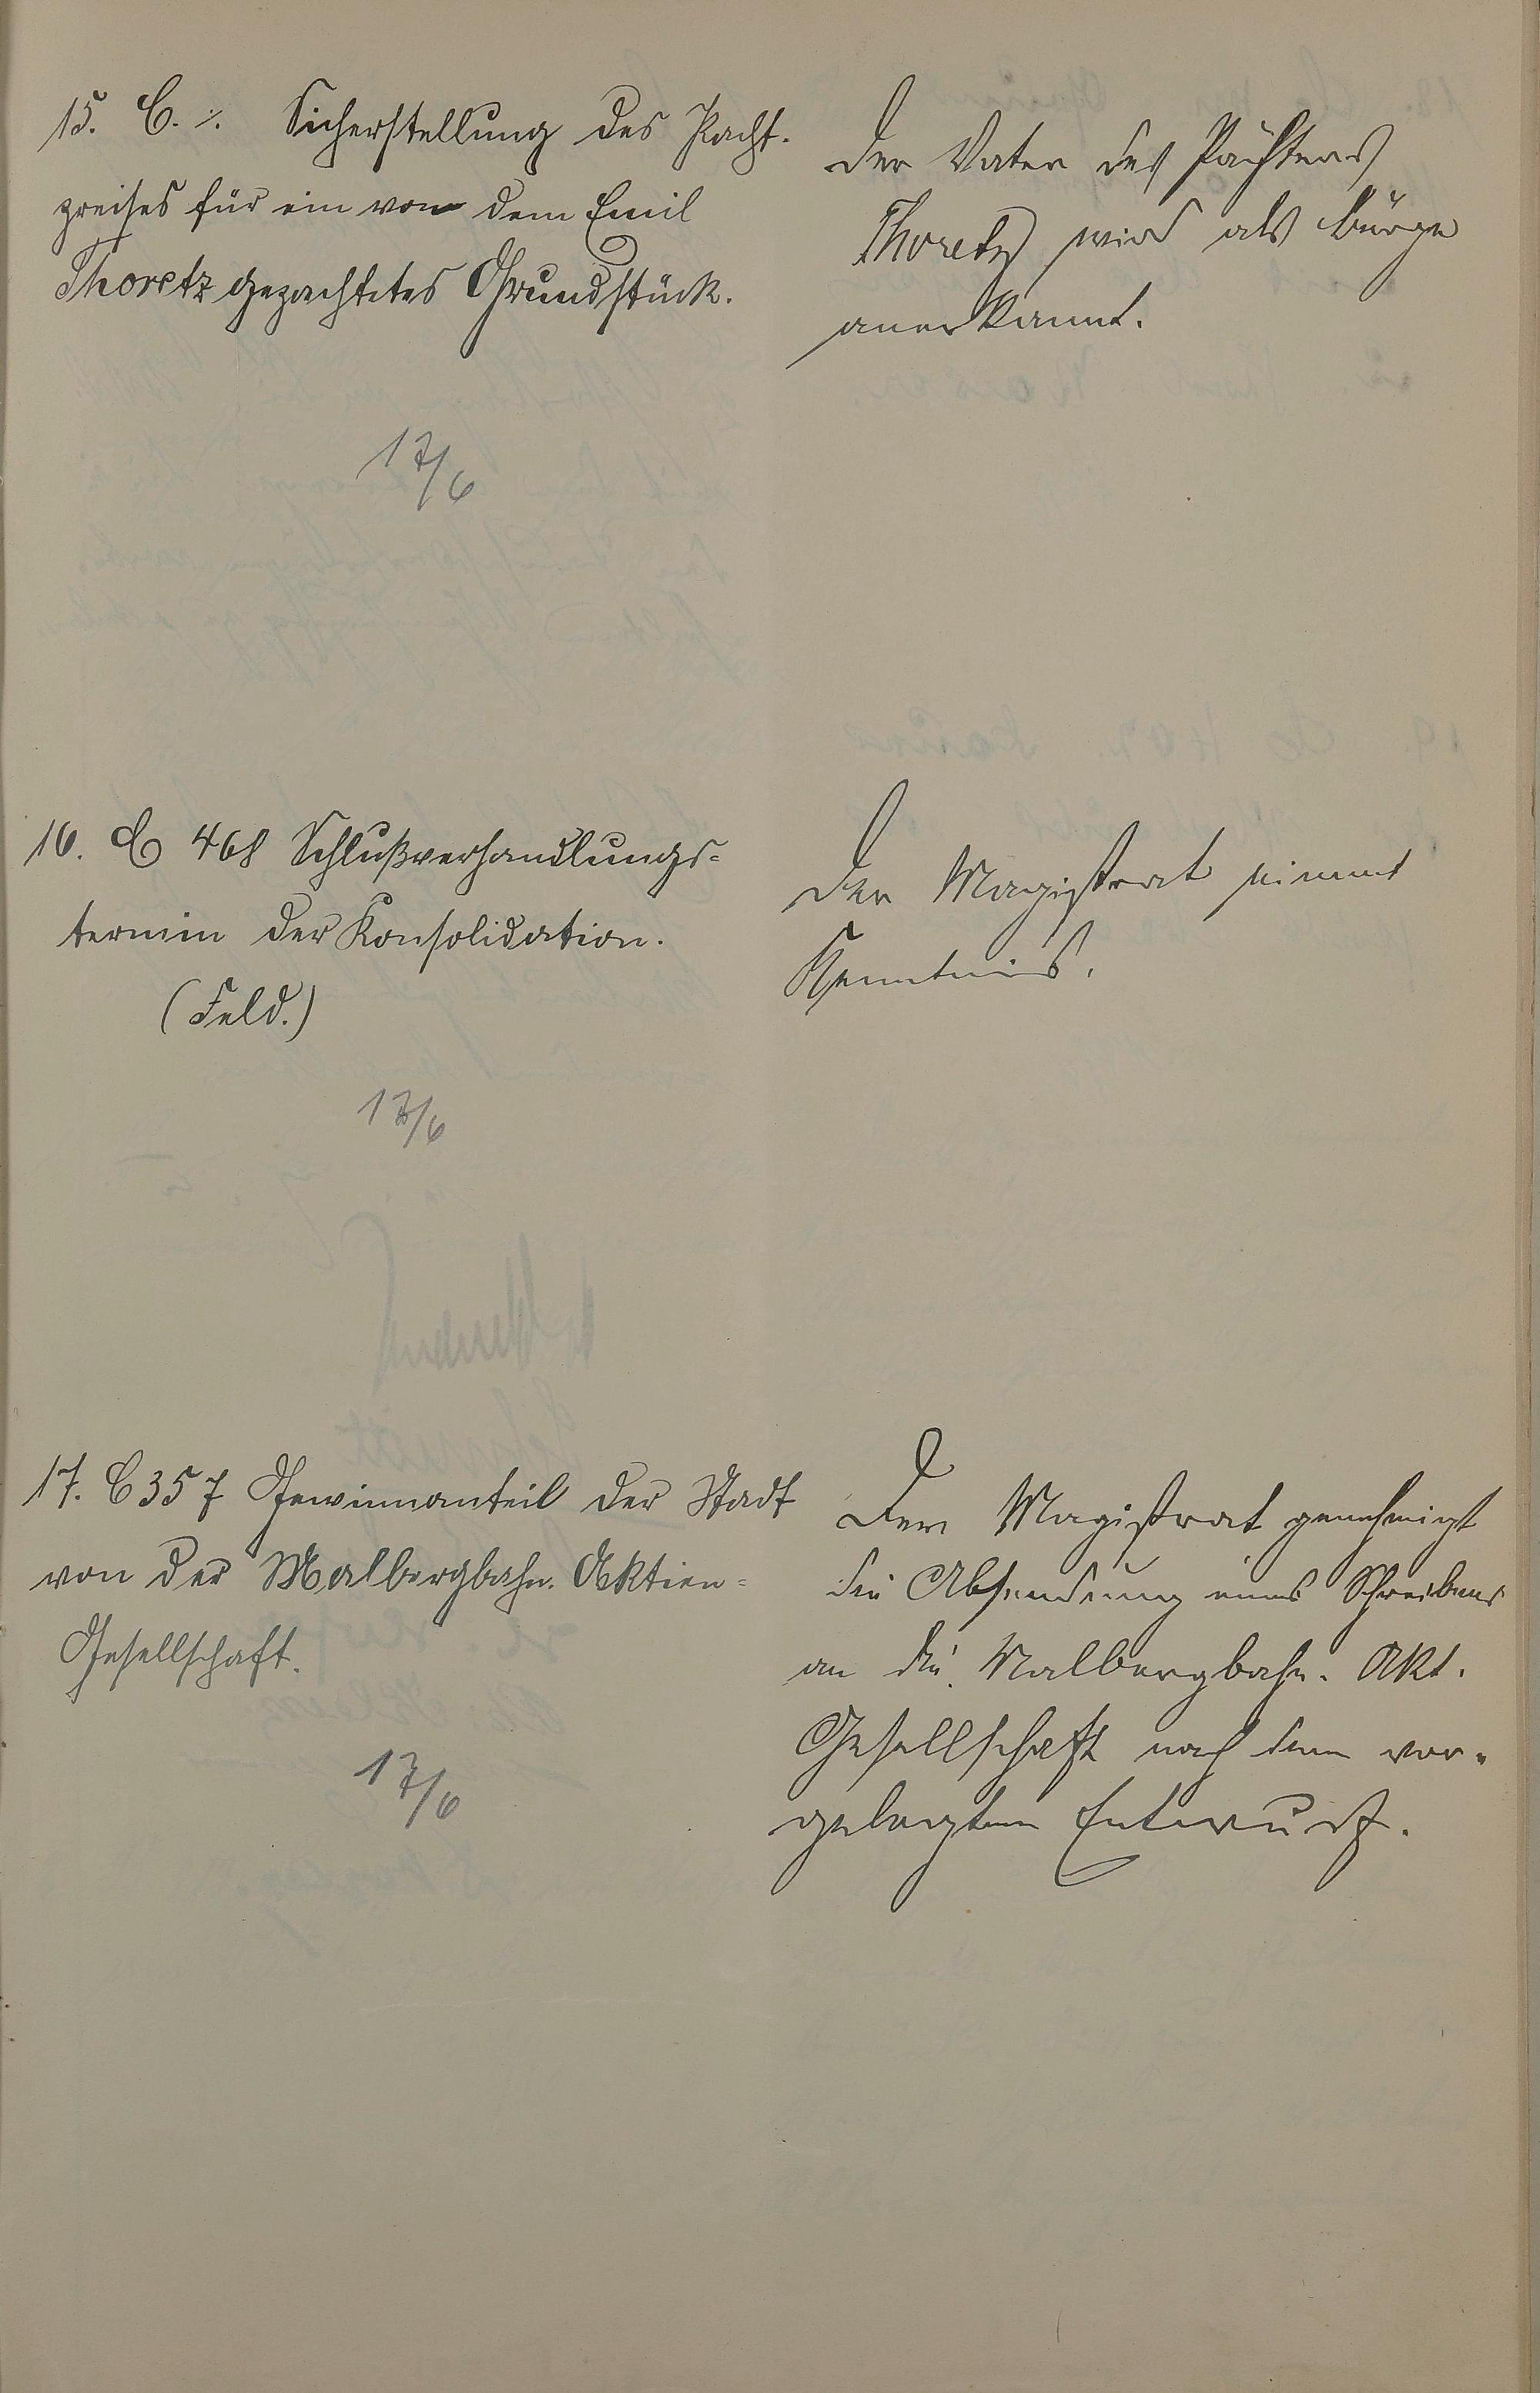 15. C. ⁒. Sicherstellung des Pacht-
preises für ein von dem Emil
Thoretz gepachtetes Grundstück.
17/6
Der Vater des Pächters
Thoretz wird als Bürge
anerkannt.
16. C 468 Schlußverhandlungs-
termin der Konsolidation.
(Feld.)
17/6
Der Magistrat nimmt
Kenntnis.
17. C 357 Gewinnanteil der Stadt
von der Malbergbahn-Aktien-
Gesellschaft.
17/6
Der Magistrat genehmigt
die Absendung eines Schreibens
an die Malbergbahn-Akt.
Gesellschaft nach dem vor-
gelegten Entwurf.